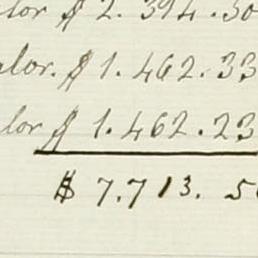 lor $ 2.394.50
alor. $ 1.462.33
lor $ 1.462.23
$ 7.713.50